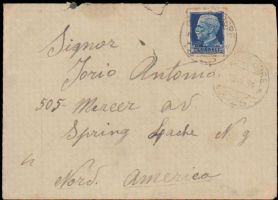 Signor
Iorio Antonio
505 Mercer av
Spring Lache N y
Nord. America